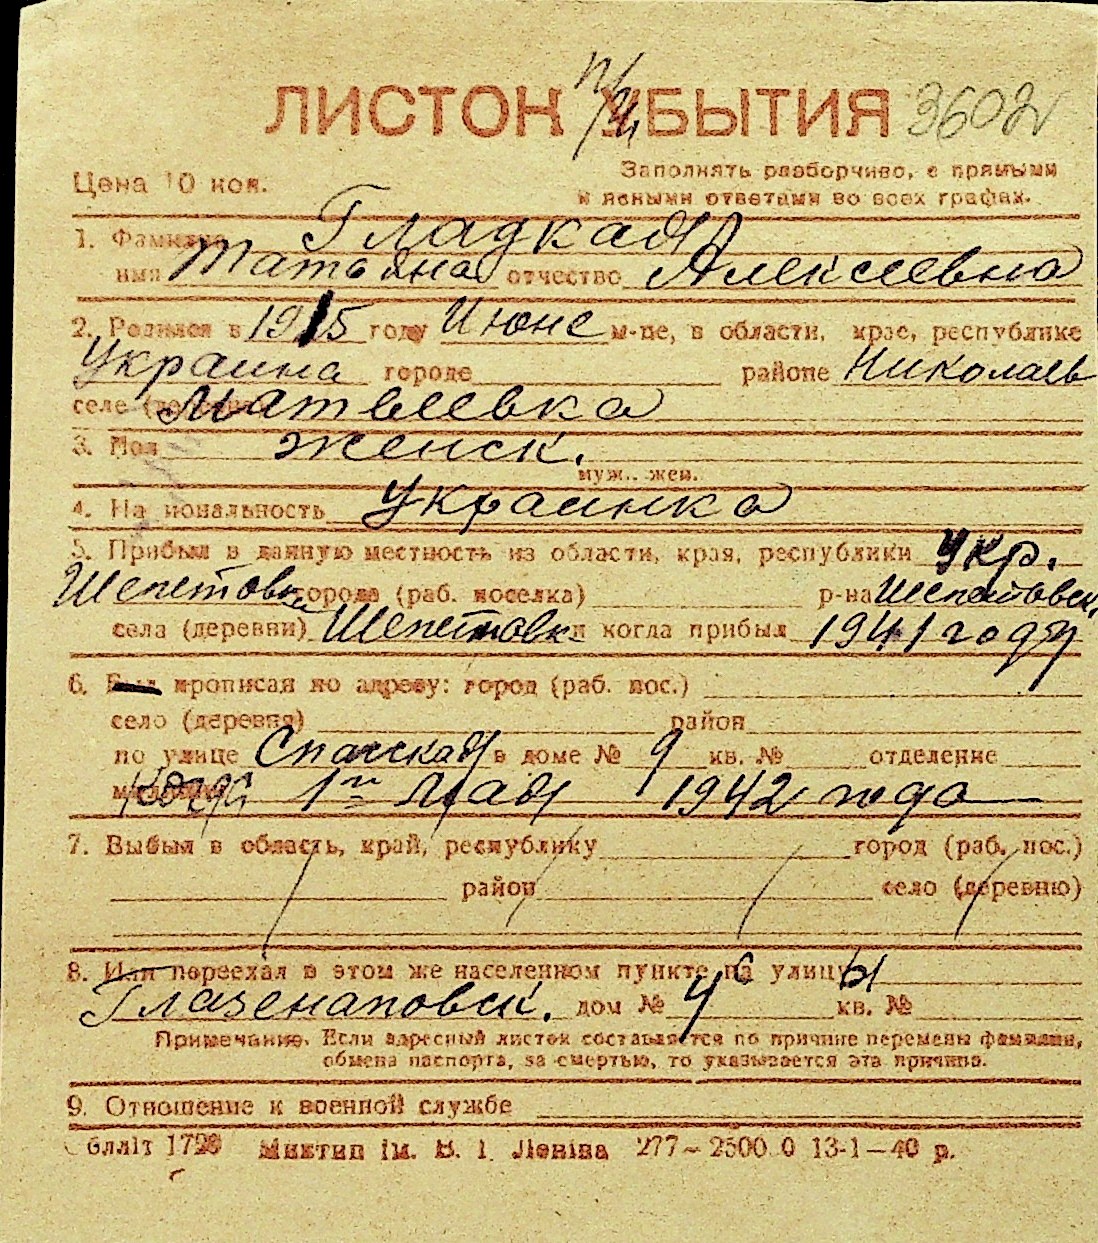 ЛИСТОК УБЫТИЯ 3602
Цена 10 коп.
Заполнять разборчиво, с прямыми
и ясными ответами во всех графах.
1. Фамилия Гладкая
имя Татьяна отчество Алексеевна
2. Родился в 1915 году Июне м-це, в области, крае, республике
Украина городе районе Николаев
селе (деревне) Матвеевка
3. Пол женск.
муж., жен.
4. Национальность Украинка
5. Прибыл в данную местность из области, края, республики Укр.
Шепетовка города (раб. поселка) р-на Шепетовск.
села (деревни) Шепетовк и когда прибыл 1941 году
6. Был прописан по адресу: город (раб. пос.)
село (деревня) район
по улице Спасская в доме № 9 кв. № отделение
милиции 1го Мая 1942 года
7. Выбыл в область, край, республику город (раб. пос.)
район село (деревню)
8. Или переехал в этом же населенном пункте на улицы
Глазенаповск. дом № 4 кв. №
Примечание. Если адресный листок составляется по причине перемены фамилии,
обмена паспорта, за смертью, то указывается эта причина.
9. Отношение к военной службе
блліт 1728 Миктип ім. В. І. Леніна 277—2500.0 13-1—40 р.